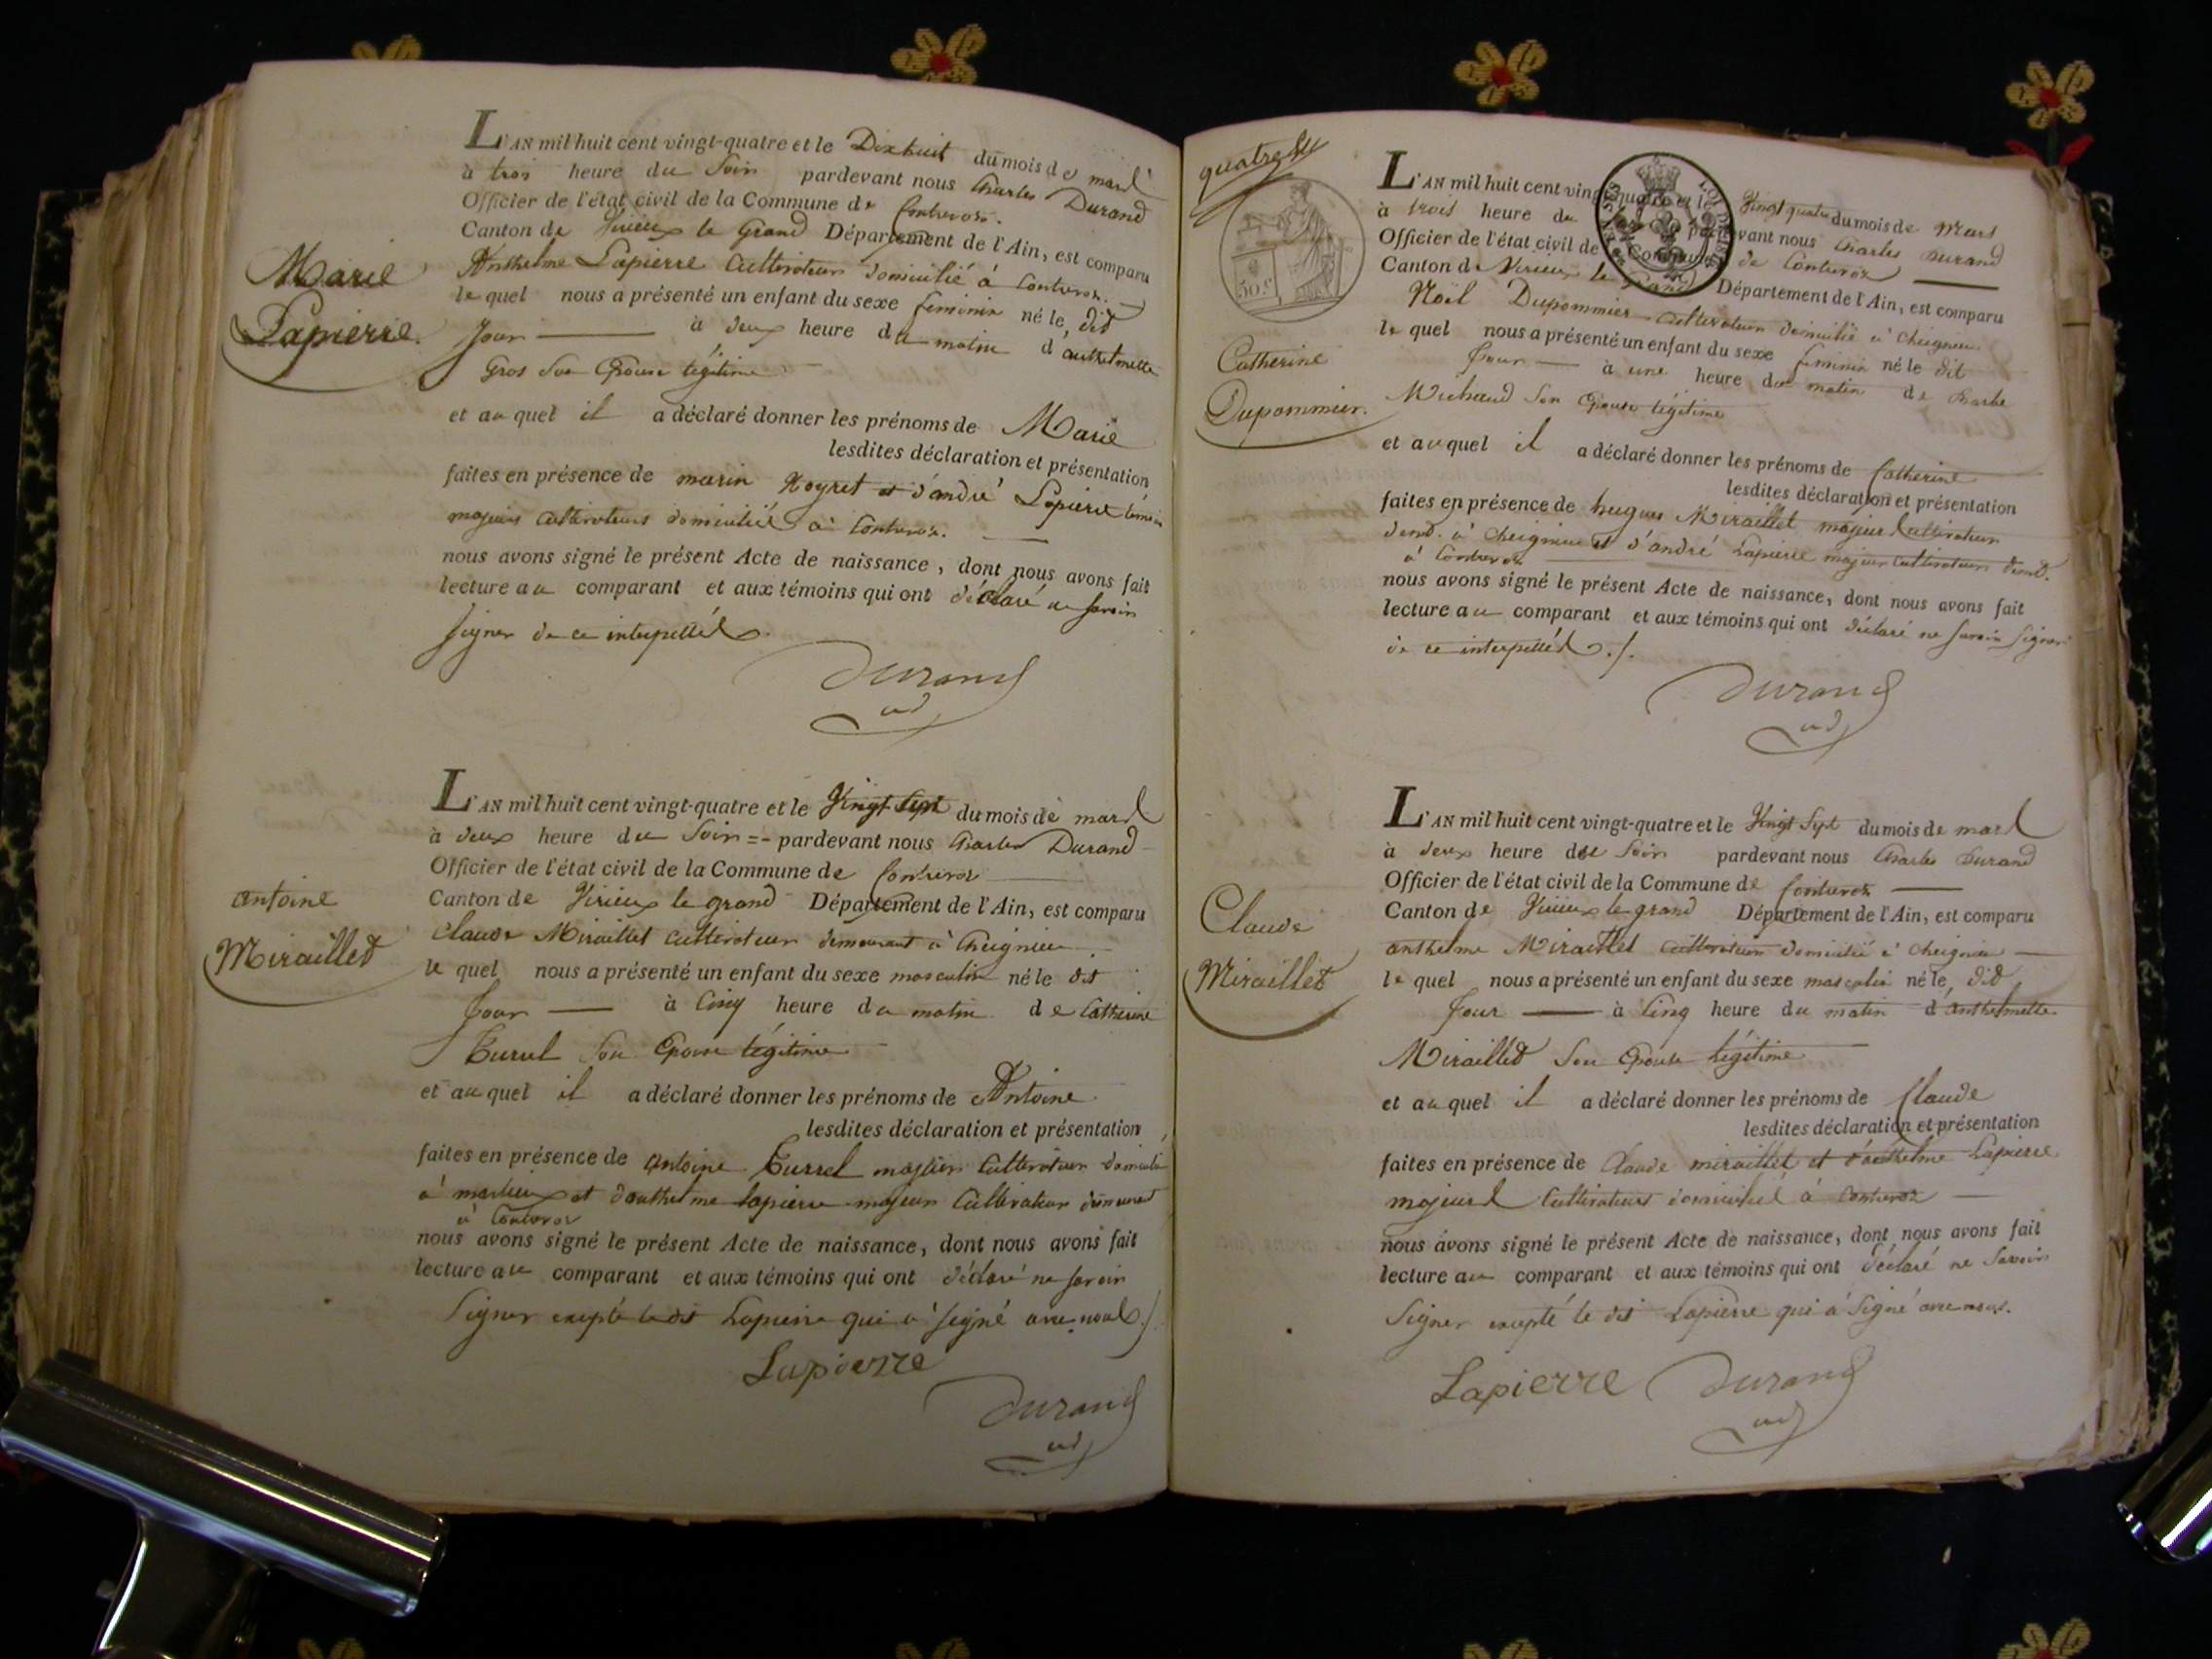 Marie
Lapierre.
L'AN mil huit cent vingt-quatre et le Dix huit du mois de mars
à trois heure du Soir pardevant nous Charles Durand
Officier de l'état civil de la Commune de Contrevoz.
Canton de Virieux le Grand Département de l'Ain, est comparu
Anthelme Lapierre Cultivateur domicilié à Contrevoz.
le quel nous a présenté un enfant du sexe feminin né le dit
Jour à deux heure du matin d'anthelmette
Gros Son Epouse légitime
et au quel il a déclaré donner les prénoms de Marie
lesdites déclaration et présentation
faites en présence de marin Hoyret et d'andré Lapierre témoins
majeurs Cultivateurs domiciliés à Contrevoz.
nous avons signé le présent Acte de naissance, dont nous avons fait
lecture au comparant et aux témoins qui ont déclaré ne savoir
signer de ce interpellés.
Durand
adj
antoine
Miraillet
L'AN mil huit cent vingt-quatre et le Vingt Sept du mois de mars
à deux heure du Soir =- pardevant nous Charles Durand
Officier de l'état civil de la Commune de Contrevoz
Canton de Virieux le grand Département de l'Ain, est comparu
Claude Miraillet Cultivateur demeurant à Cheignieu
le quel nous a présenté un enfant du sexe masculin né le dit
Jour à Cinq heure du matin de Catherine
Son Epouse légitime
et au quel il a déclaré donner les prénoms de Antoine.
lesdites déclaration et présentation
faites en présence de antoine majeur Cultivateur domicilié
à et d'anthelme Lapierre majeur Cultivateur demeurant
à Contrevoz
nous avons signé le présent Acte de naissance, dont nous avons fait
lecture au comparant et aux témoins qui ont déclaré ne savoir
Signer excepté le dit Lapierre qui a signé avec nous./.
Lapierre
Durand
adj
quatre
50.c
Catherine
Dupommier.
L'AN mil huit cent vingt-quatre et le Vingt quatre du mois de Mars
à trois heure du pardevant nous Charles Durand
Officier de l'état civil de la Commune de Contrevoz
Canton de Virieux le Grand Département de l'Ain, est comparu
Noël Dupommier Cultivateur domicilié à Cheignieu
le quel nous a présenté un enfant du sexe feminin né le dit
Jour à une heure du matin de Charlotte
Michaud Son Epouse légitime
et au quel il a déclaré donner les prénoms de Catherine
lesdites déclaration et présentation
faites en présence de hugues Miraillet majeur Cultivateur
demt. à Cheignieu et d'andré Lapierre majeur Cultivateur demt.
à Contrevoz
nous avons signé le présent Acte de naissance, dont nous avons fait
lecture au comparant et aux témoins qui ont déclaré ne savoir Signer
de ce interpellés./.
Durand
adj
Claude
Miraillet
L'AN mil huit cent vingt-quatre et le Vingt Sept du mois de mars
à deux heure du Soir pardevant nous Charles Durand
Officier de l'état civil de la Commune de Contrevoz
Canton de Virieux le grand Département de l'Ain, est comparu
anthelme Miraillet Cultivateur domicilié à Cheignieu
le quel nous a présenté un enfant du sexe masculin né le dit
Jour à Cinq heure du matin d'anthelmette
Miraillet Son Epouse légitime
et au quel il a déclaré donner les prénoms de Claude
lesdites déclaration et présentation
faites en présence de Claude miraillet et d'anthelme Lapierre
majeurs Cultivateurs domiciliés à Contrevoz
nous avons signé le présent Acte de naissance, dont nous avons fait
lecture au comparant et aux témoins qui ont déclaré ne Savoir
Signer excepté le dit Lapierre qui a Signé avec nous.
Lapierre Durand
adj